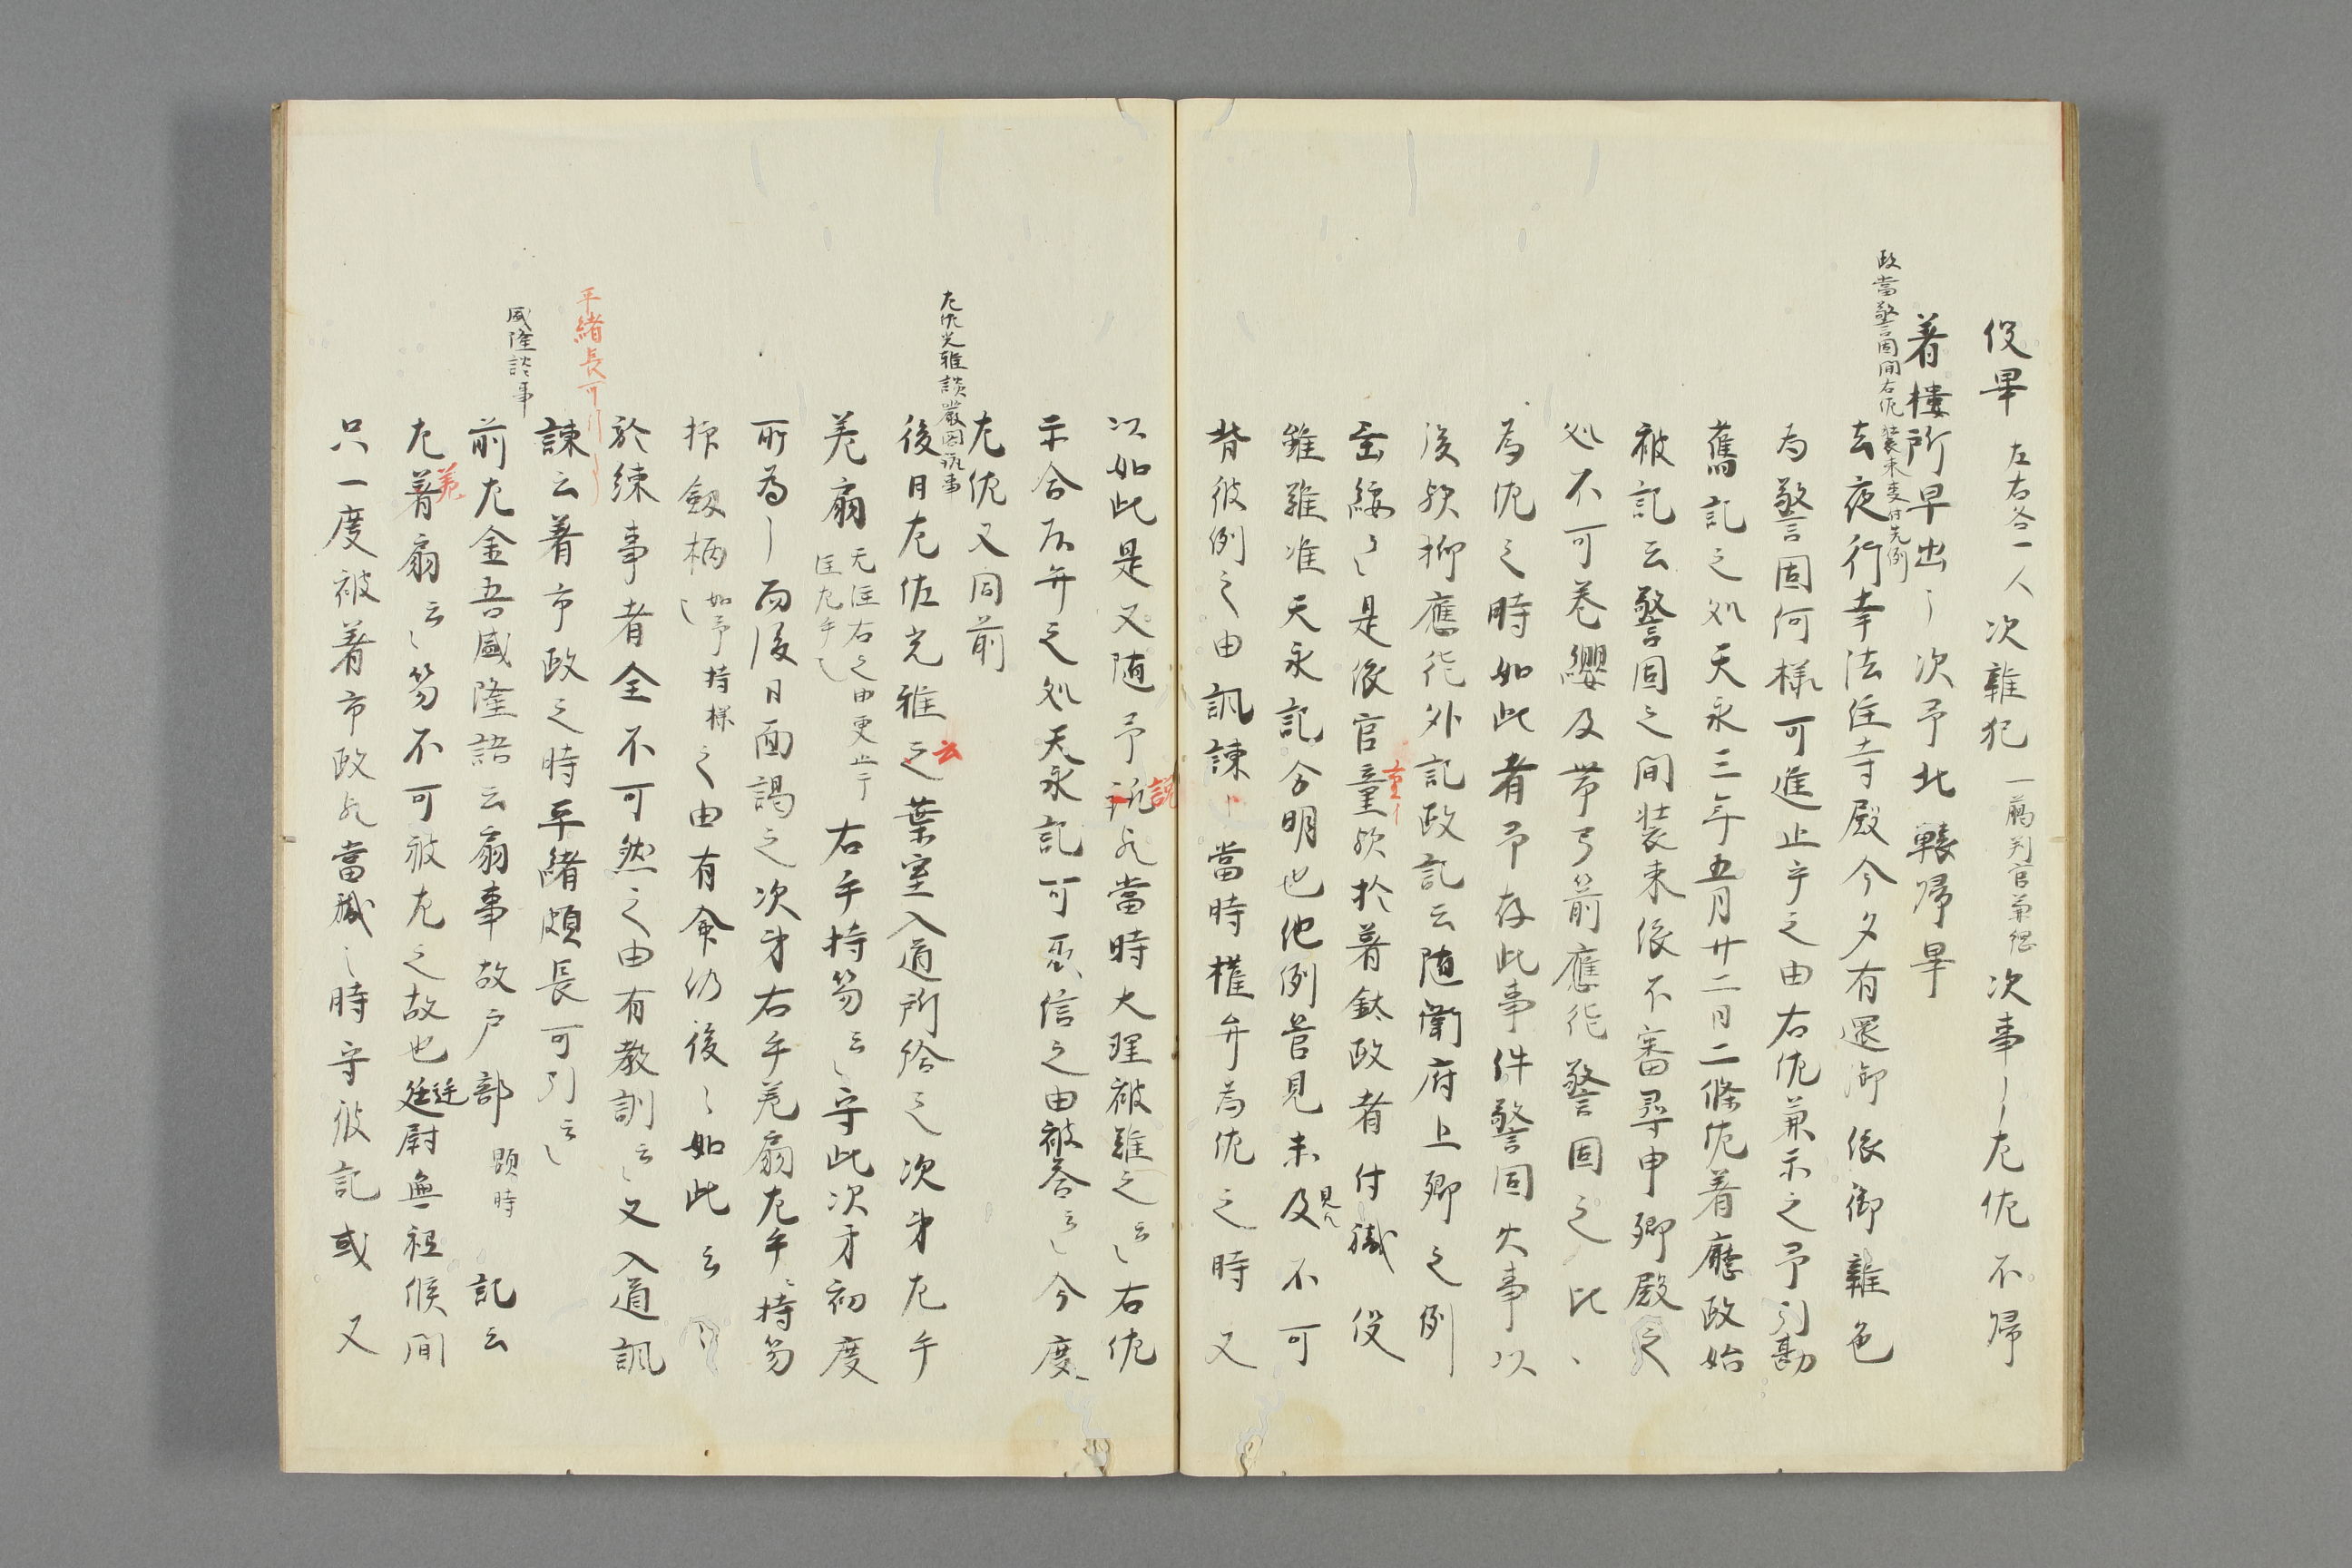 役畢 左右各一人 次雜犯 一﨟判官兼綱 次事〻 左佐不帰
着樓所早出〻 次予北轅帰畢
政当警固間右佐装束事付先例
去夜行幸法住寺殿今夕有還御依御雑色
為警固何様可進止乎之由右佐兼示之予引勘
舊記之処天永三年五月廿二日二條佐着廳政始
被記云警固之間装束依不審尋申卿殿之
処不可巻纓及帯弓箭應従警固之比〻
為佐之時如此者予存此事件警固大事以
後欤抑應従外記政記云随衛府上卿之例
垂緌云々是依官重欤於着釱政者付職役
雖難准天永記分明也他例菅見未及見不可
背彼例之由諷諫〻當時権弁為佐之時又
以如此是又随予説也當時大理被難之云々右佐
示合左弁之処天永記可悉信之由被答云々今度
左佐又同前
左佐光雅談厳固説事
後日左佐光雅云葉室入道所給之次第左手
笏扇 無左右之由更 左手 右手持笏云々守此次第初度
所為〻而後日面謁之次第右手笏扇左手持笏
押劔柄 如予持様 之由有命仍後々如此云々
於練事者全不可然之由有教訓云々又入道諷
平緒長可引
諫云着市政之時平緒頗長可引云々
盛隆談事
前左金吾盛隆語云扇事故戸部 顕時 記云
左着扇云々笏不可被左之故也廷尉無祖候間
只一度被着市政也當職之時守彼記或又